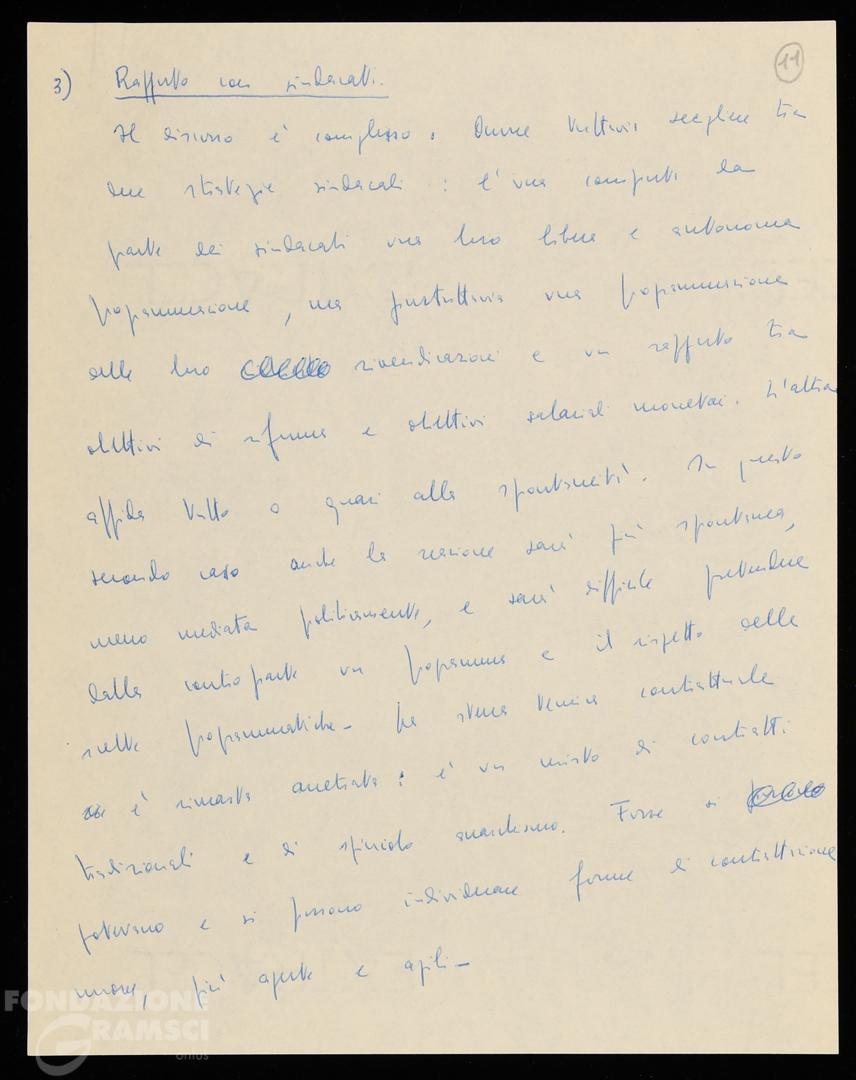 11
3) Rapporto con sindacati.
Il discorso è complesso. Occorre tuttavia scegliere tra
due strategie sindacali: l'una comporta da
parte dei sindacati una loro libera e autonoma
programmazione, ma pur tuttavia una programmazione
delle loro rivendicazioni e un rapporto tra
obiettivi di riforma e obiettivi salariali monetari. L'altra
affida tutto o quasi alla spontaneità. In questo
secondo caso anche la reazione sarà più spontanea,
meno mediata politicamente, e sarà difficile pretendere
dalla controparte un programma e il rispetto delle
scelte programmatiche - La stessa tecnica contrattuale
è rimasta arretrata: è un misto di contratti
tradizionali e di spicciolo anarchismo. Forse si
potevano e si possono individuare forme di contrattazione
nuove, più aperte e agili -
FONDAZIONE
GRAMSCI
onlus